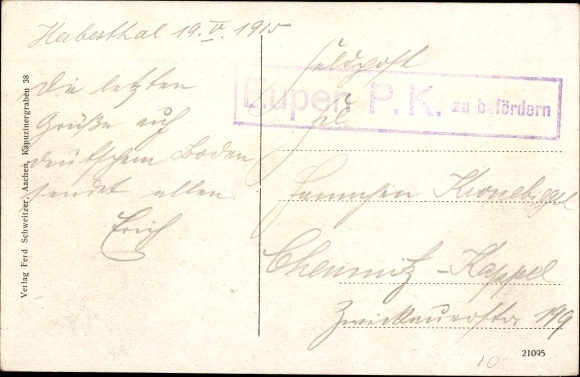 Herbesthal 19. V. 1915
Die letzten
Grüße auf
deutschem Boden
sendet allen
Erich
Verlag Ferd Schweitzer, Aachen, Kapuzinergraben 38
Feldpost
Eupen P. K. zu befördern
Kronebigel
Chemnitz-Kappel
Zwickauerstr. 119
21095
10